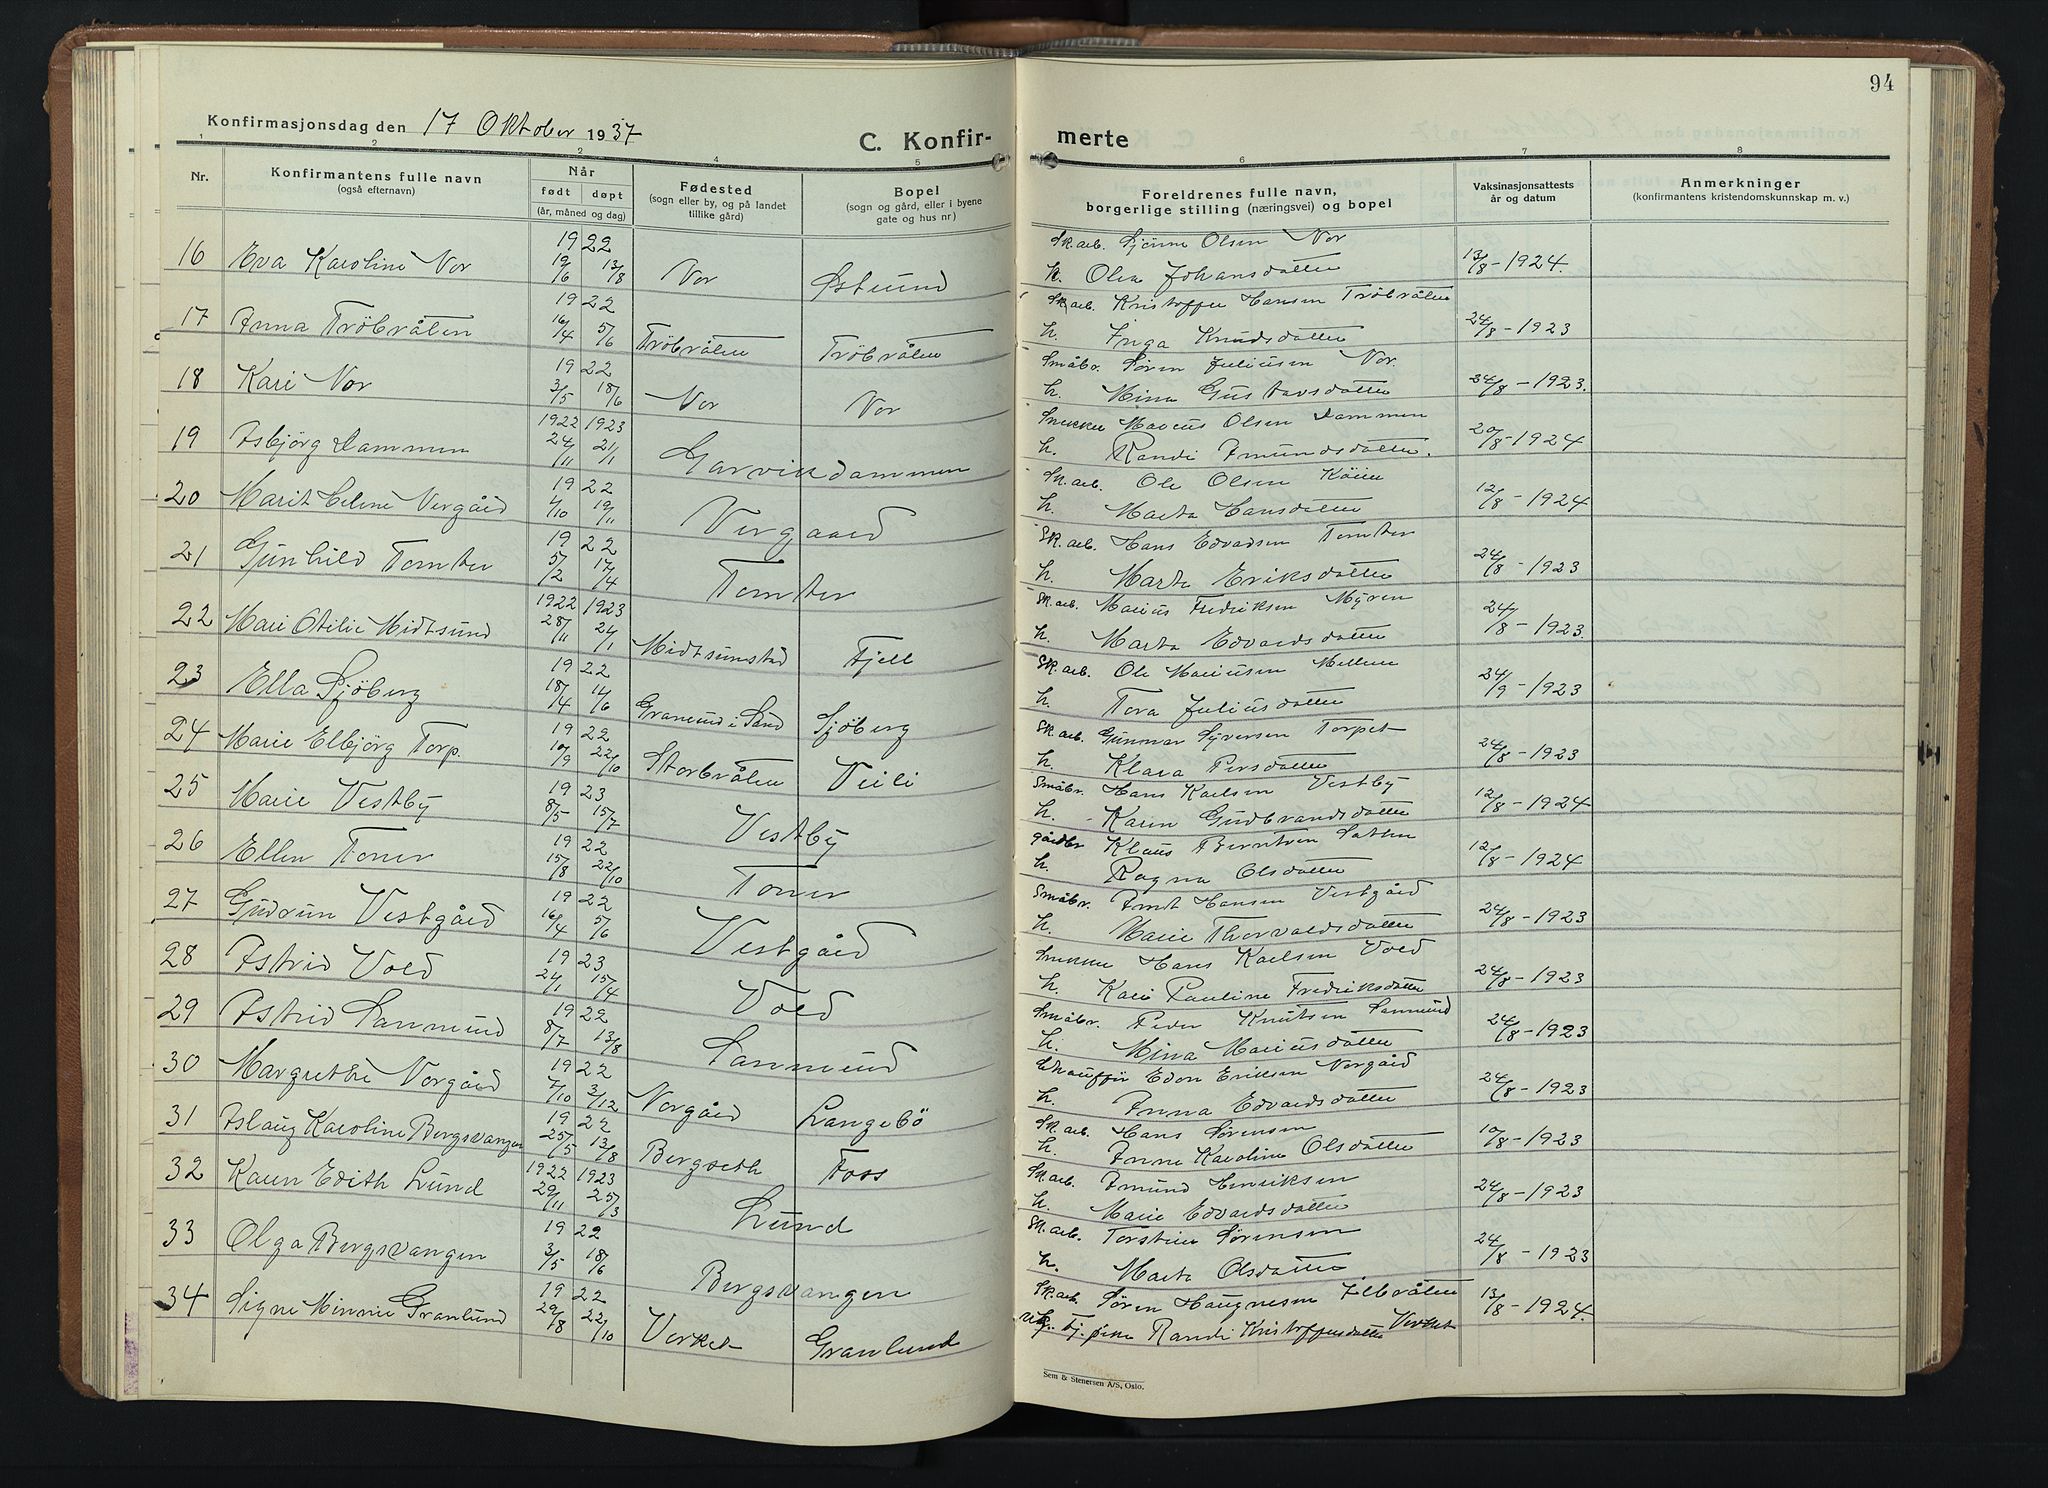 94
Konfirmasjonsdag den 17 Oktober 1937
C. Konfir-
merte
1 2 3 4 5 6 7 8
Nr.
Konfirmantens fulle navn
(også efternavn)
Når
født døpt
(år, måned og dag)
Fødested
(sogn eller by, og på landet
tillike gård)
Bopel
(sogn og gård, eller i byene
gate og hus nr)
Foreldrenes fulle navn,
borgerlige stilling (næringsvei) og bopel
Vaksinasjonsattests
år og datum
Anmerkninger
(konfirmantens kristendomskunnskap m. v.)
1922 Sk.arb. Olsen Nor
16 Eva Karoline Nor 19/6 13/8 Nor Østlund h. Olea Johansdatter 13/8-1924.
1922 Sk.arb. Kristoffer Hansen Tröbråten
17 Anna Tröbråten 16/4 5/6 Tröbråten Tröbråten h. Inga Knudsdatter 24/8-1923
1922 Småbr. Søren Juliusen Nor.
18 Kari Nor 3/5 18/6 Nor Nor h. Mina Gustavsdatter 24/8-1923.
1922 1923 Snekker Marius Olsen Dammen
19 Asbjörg Dammen 24/11 21/1 Garvikdammen h. Randi Amundsdatter. 20/8-1924
1922 Sk.arb. Ole Olsen Köien
20 Marit Helene Vergård 4/10 19/11 Vergaard h. Marta Hansdatter 12/8-1924
1922 Sk.arb. Hans Edvardsen Tomter
21 Gunhild Tomter 5/2 17/4 Tomter h. Marta Eriksdatter 24/8-1923
1922 1923 Sk.arb. Marius Fredriksen Myren
22 Mari Otilie Midtsund 28/11 21/1 Midtsunstad Fjell h. Marta Edvardsdatter 24/8-1923.
1922 Sk.arb. Ole Mariusen Mellem
23 Ella Sjöberg 18/4 11/6 Granlund i Sand Sjöberg h. Tora Juliusdatter 24/9-1923
1922 Sk.arb. Gunmar Syversen Torpet
24 Marie Elbjörg Torp. 10/9 22/10 Storbråten Veili h. Klara Persdatter 24/8-1923
1923 Småbr. Hans Karlsen Vestby
25 Marie Vestby 8/5 15/7 Vestby h. Karen Gudbrandsdatter 12/8-1924
1922 gårdbr Klaus Berntsen
26 Ellen Toner 15/8 22/10 Toner h. Ragna Olsdatter 12/8-1924
1922 Småbr. Arndt Hansen Vestgård
27 Gudrun Vestgård 16/4 5/6 Vestgård h. Marie Thorvaldsdatter 24/8-1923
1923 Snekker Hans Karlsen Vold
28 Astrid Vold 24/1 15/4 Vold h. Kari Pauline Fredriksdatter 24/8-1923
1922 Småbr. Peder Knutsen Sanmund
29 Astrid Sanmund 8/7 13/8 Sanmund h. Mina Mariusdatter 24/8-1923
1922 Chauffør Edon Eriksen Norgård
30 Margrethe Norgård 7/10 3/12 Norgård Langebö h. Anna Edvardsdatter 24/8-1923
1922 Sk.arb. Hans Sørensen
31 Aslaug Karoline Bergsvangen 25/5 13/8 Bergseth Foss h. Anne Karoline Olsdatter 10/8-1923
1922 1923 Sk.arb. Amund Henriksen
32 Karen Edith Lund 29/11 25/3 Lund h. Marie Edvardsdatter 24/8-1923
1922 Sk.arb. Torstein Sørensen
33 Olga Bergsvangen 3/5 18/6 Bergsvangen h. Marta Olsdatter 24/8-1923
1922 Sk.arb. Sören Haugnesen
34 Signe Minnie Granlund 29/8 22/10 Verket Granlund Randi Kristoffersdatter Verket 13/8-1924.
Sem & Stenersen A/S, Oslo.